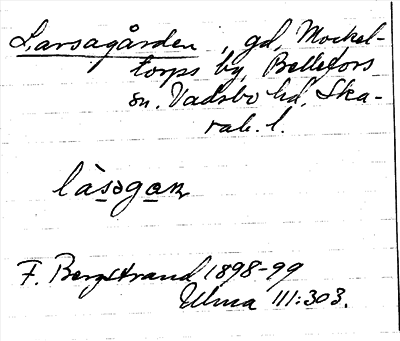 Larsagården, gd, Mockel-
torps by, Bellefors
sn. Vadsbo hd, Ska-
rab. l.
làsəgaɳ
F. Bergstrand 1898-99
Ulma 111:303.